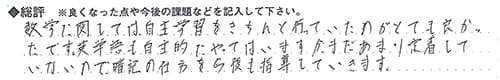 ◆総評 ※良くなった点や今後の課題などを記入して下さい。
数学に関しては自主学習をきちんと行っていたのがとても良かっ
たです。英学も自主的にやってはいますがまだあまり定着して
いないので暗記の仕方を今後も指導していきます。